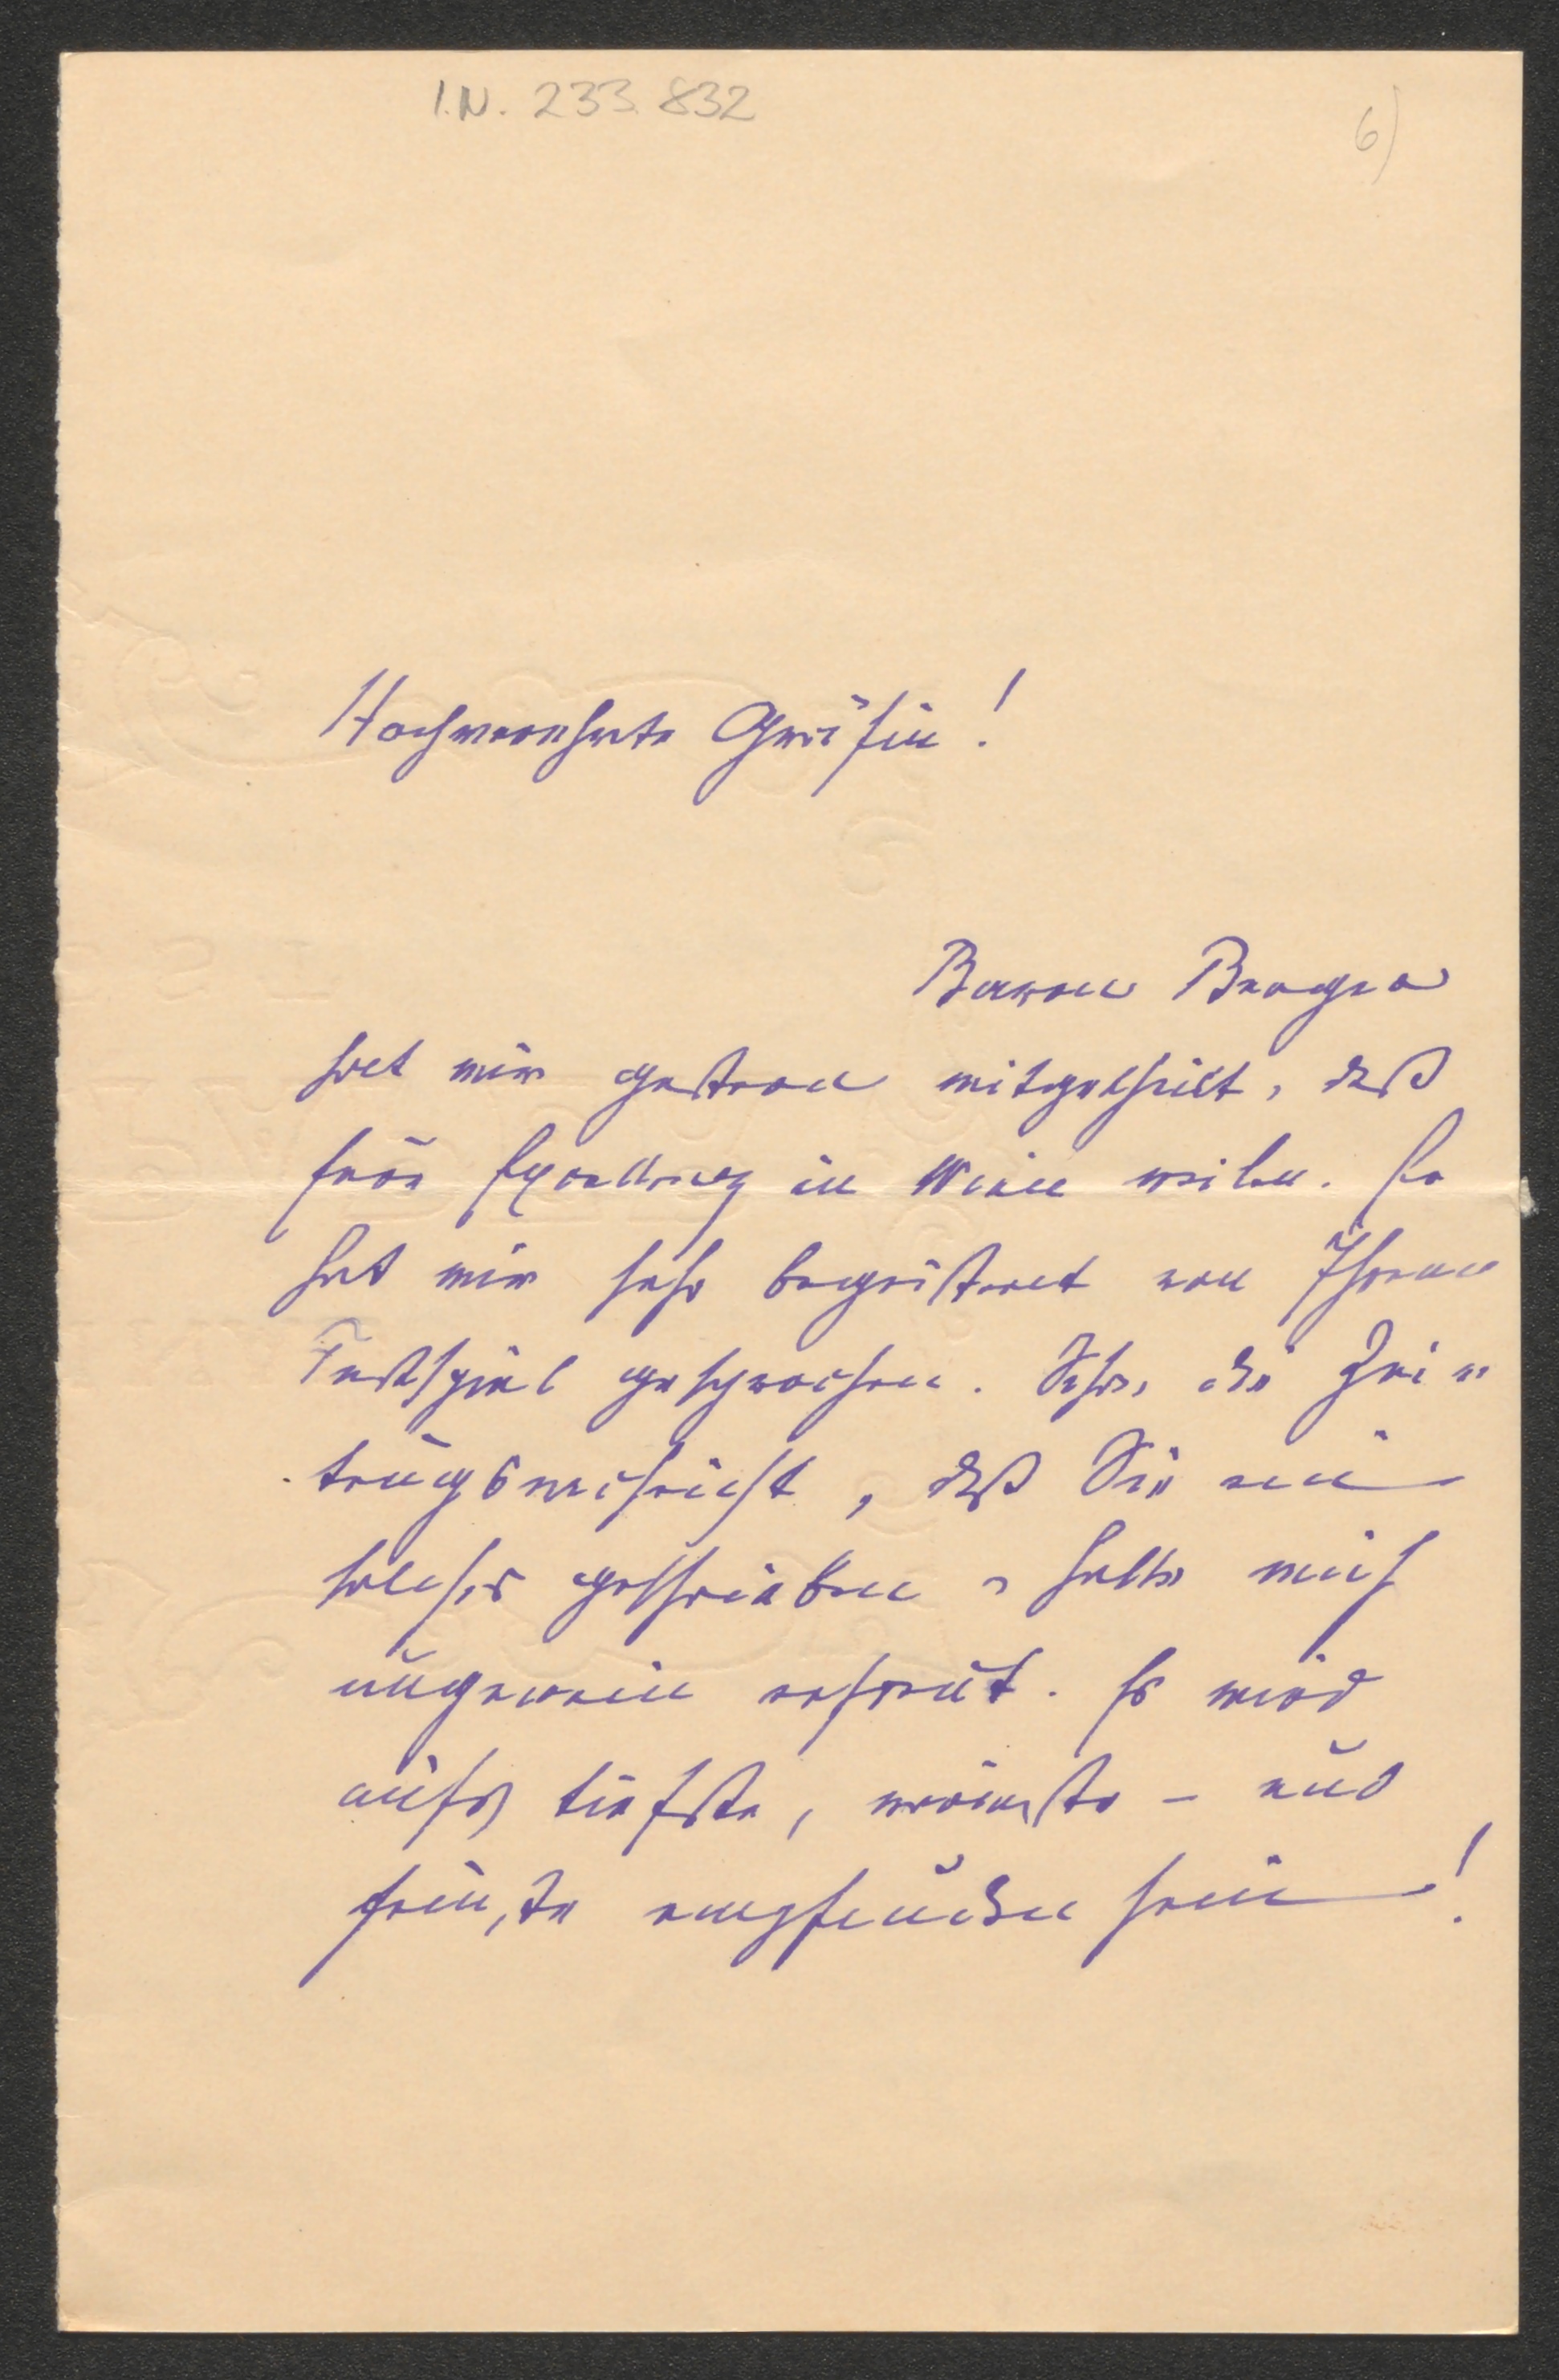 I.N. 233.832
6)
Hochverehrte Gräfin!
Baron Berger
hat mir gestern mitgetheilt, daß
Euere Excellenz in Wien weilen. Er
hat mir sehr begeistert von Ihrem
Festspiel gesprochen. Schon die Zei-
tungsnachricht, daß Sie ein
solches geschrieben, hatte mich
ungemein erfreut. Es wird
aufs tiefste, wärmste – und
feinste empfunden sein!